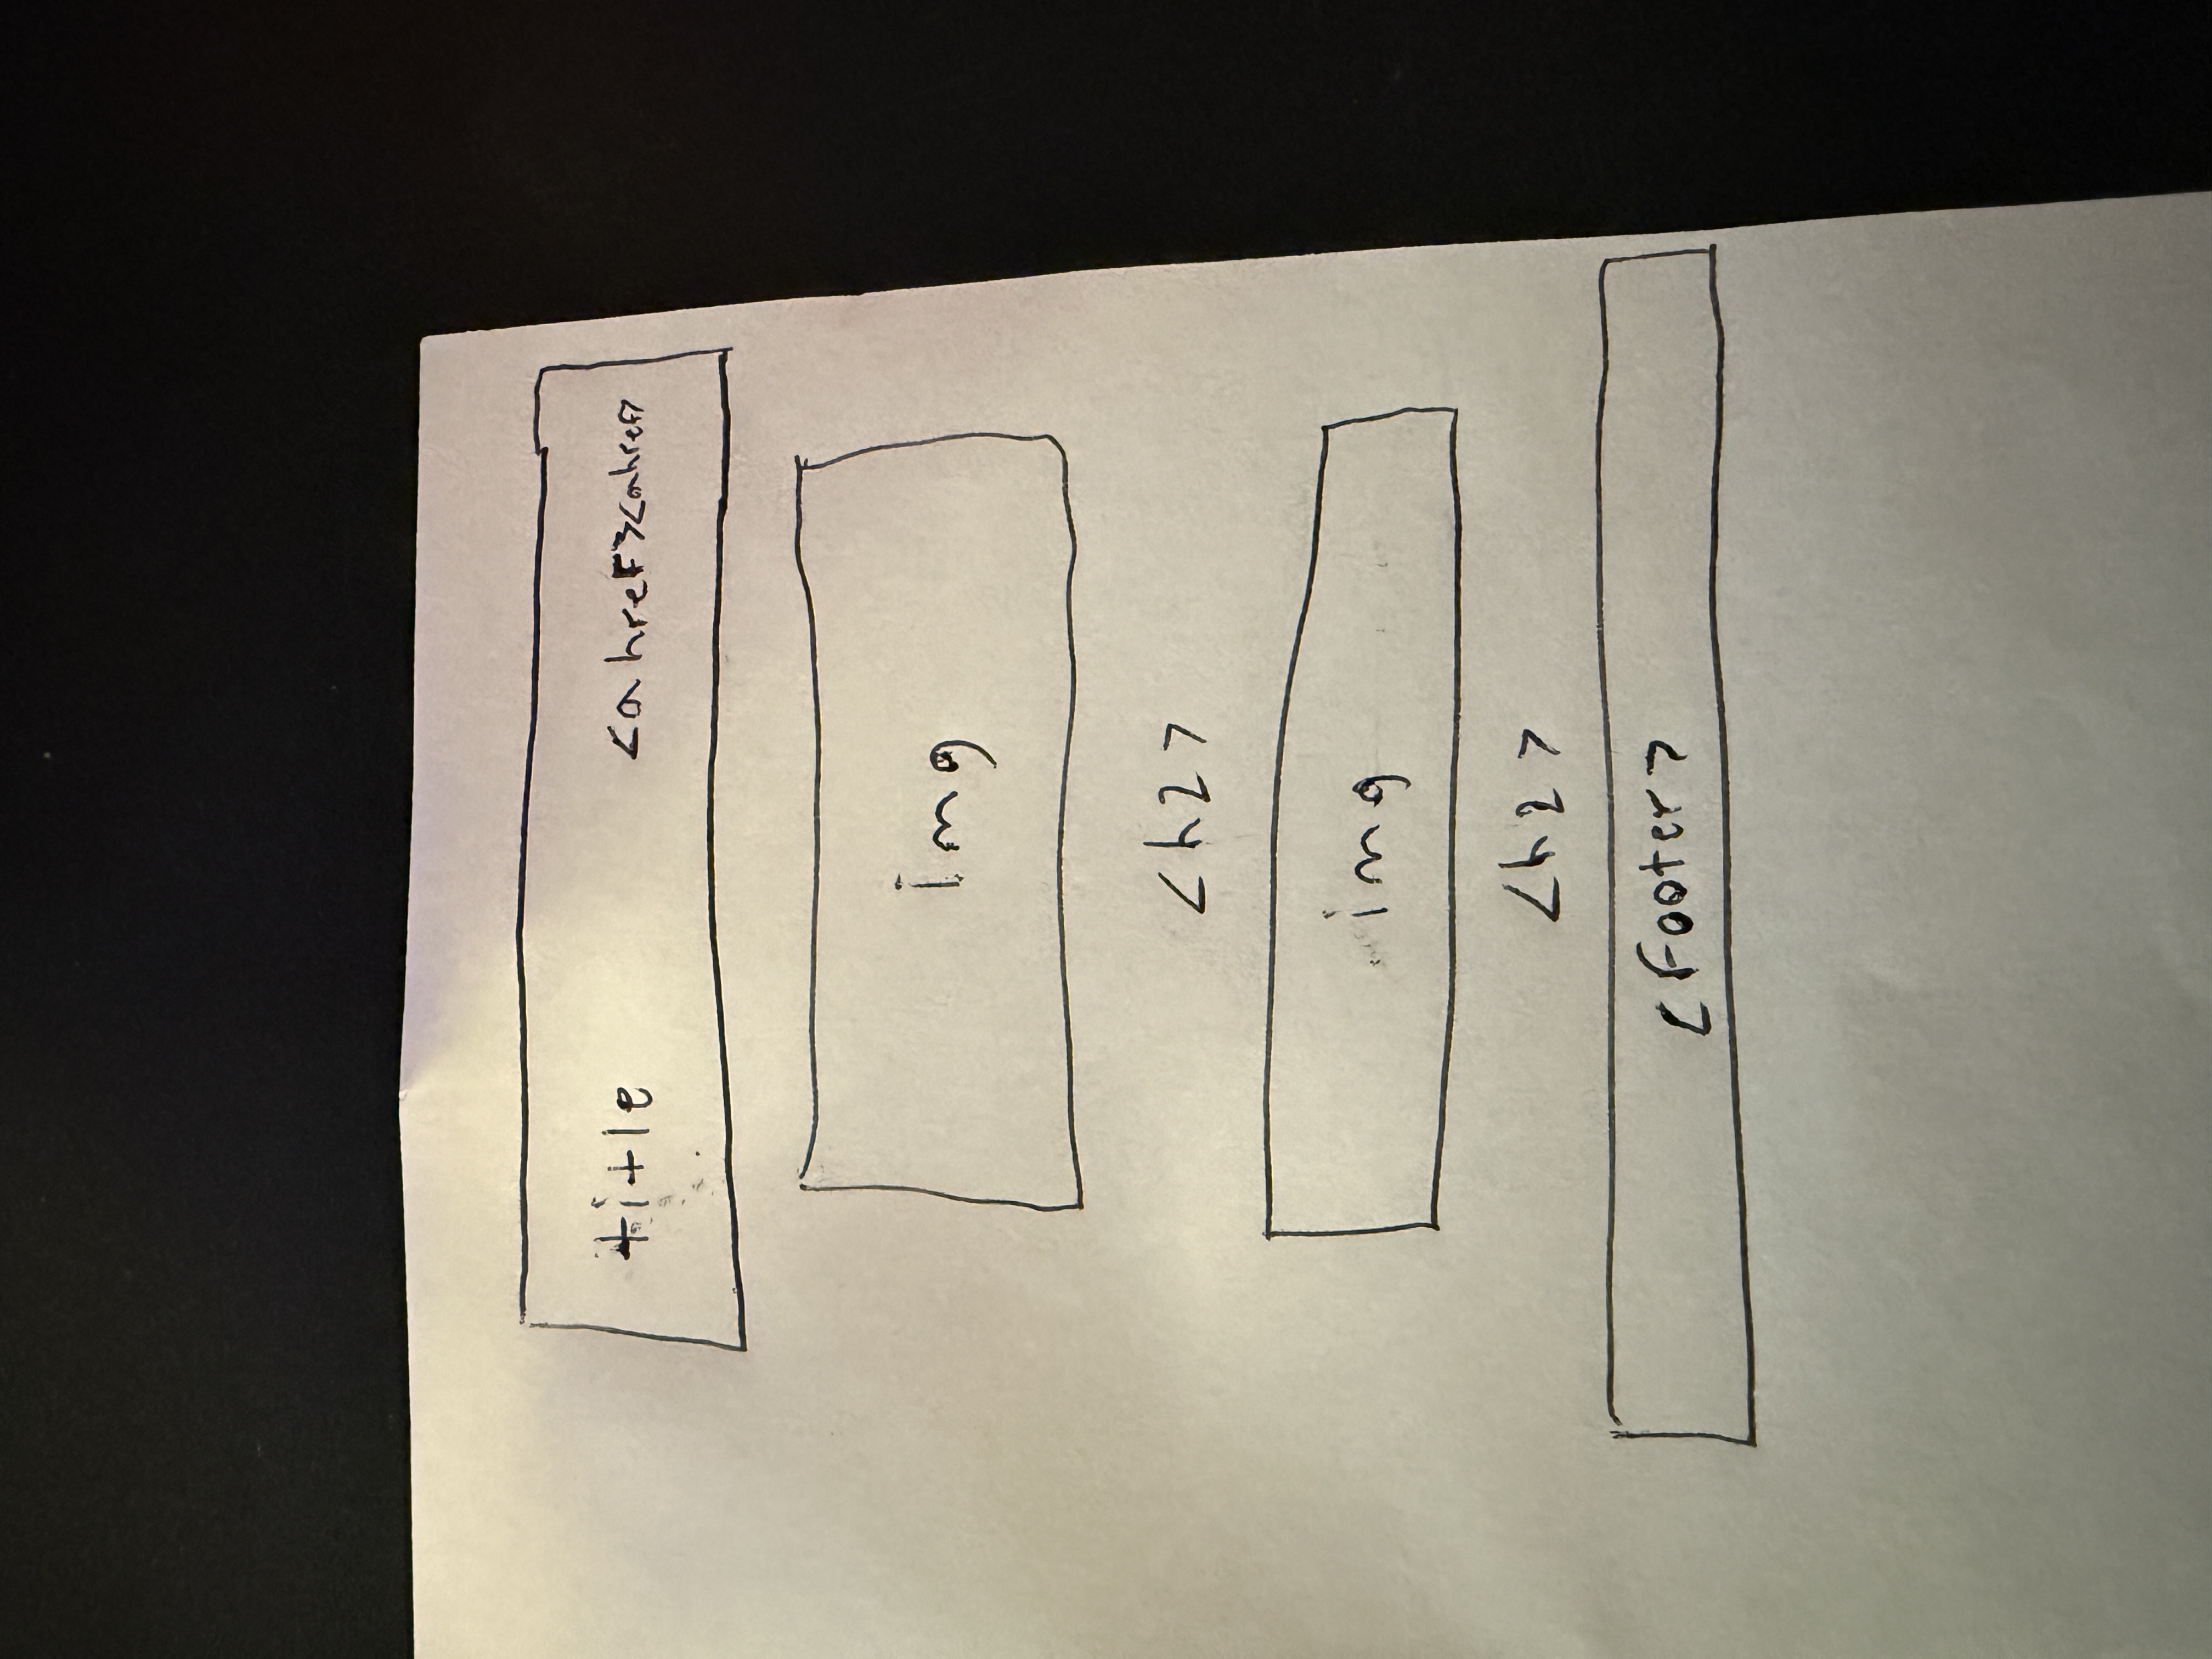 title <a href><a href>
img
<h2>
img
<h2>
<footer>